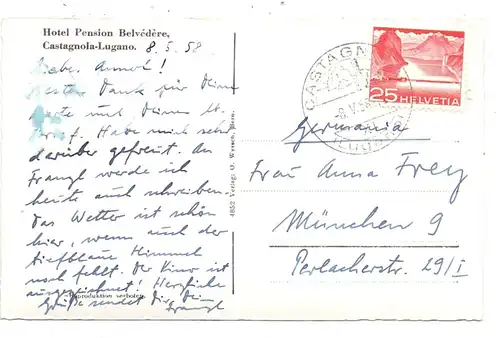 Hotel Pension Belvédère,
Castagnola-Lugano. 8.5.58
Liebe Annerl!
Besten Dank für Deine
Karte und Deinen lb.
Habe mich sehr
darüber gefreut. An
Franzl werde ich
heute auch schreiben.
Das Wetter ist schön
hier, wenn auch der
tiefblaue Himmel
noch fehlt. Der Kino ist
ausgezeichnet! Herzliche
Reproduktion verboten
Grüße sendet Dir Dein
Franzl
4852 Verlag: O. Wyrsch, Bern.
CASTAGN
25 HELVETIA
Germania
Frau Anna Frey
München 9
Perlacherstr. 29/I